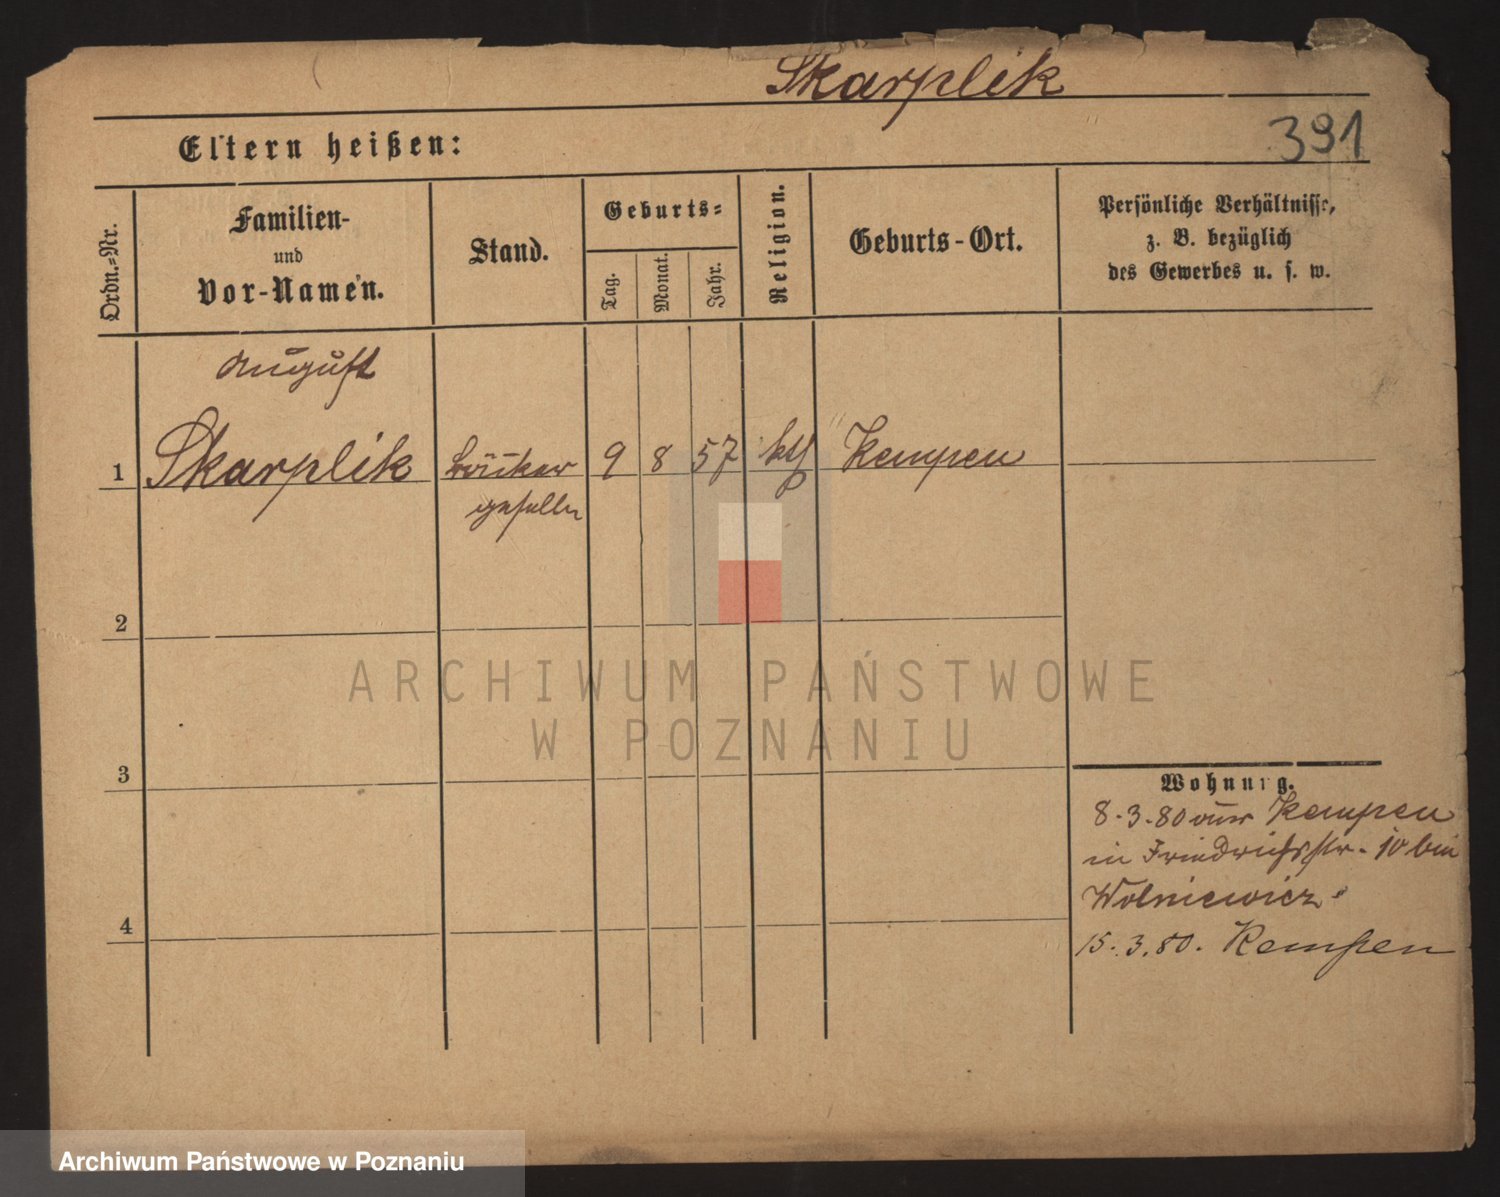 Skarplik
391
Eltern heißen:
Ordn.-Nr.
Familien-
und
Vor-Namen.
Stand.
Geburts-
Tag.
Monat.
Jahr.
Religion.
Geburts-Ort.
Persönliche Verhältnisse,
z. B. bezüglich
des Gewerbes u. s. w.
August
1 Skarplik 9 8 57 kth Kempen
geselle
2
3
4
Wohnung.
8.3.80 aus Kempen
in Friedrichsstr. 10 bei
Wolniewicz
15.3.80. Kempen
ARCHIWUM PAŃSTWOWE
W POZNANIU
Archiwum Państwowe w Poznaniu